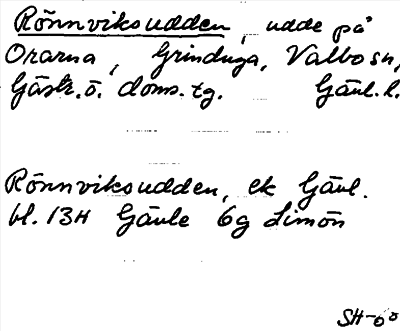 Rönnviksudden, udde på
Orarna, Grinduga, Valbo sn,
Gästr. ö. doms. tg. Gävl. l.
Rönnviksudden, ek Gävl.
bl. 13H Gävle 6g Limön
SH-60